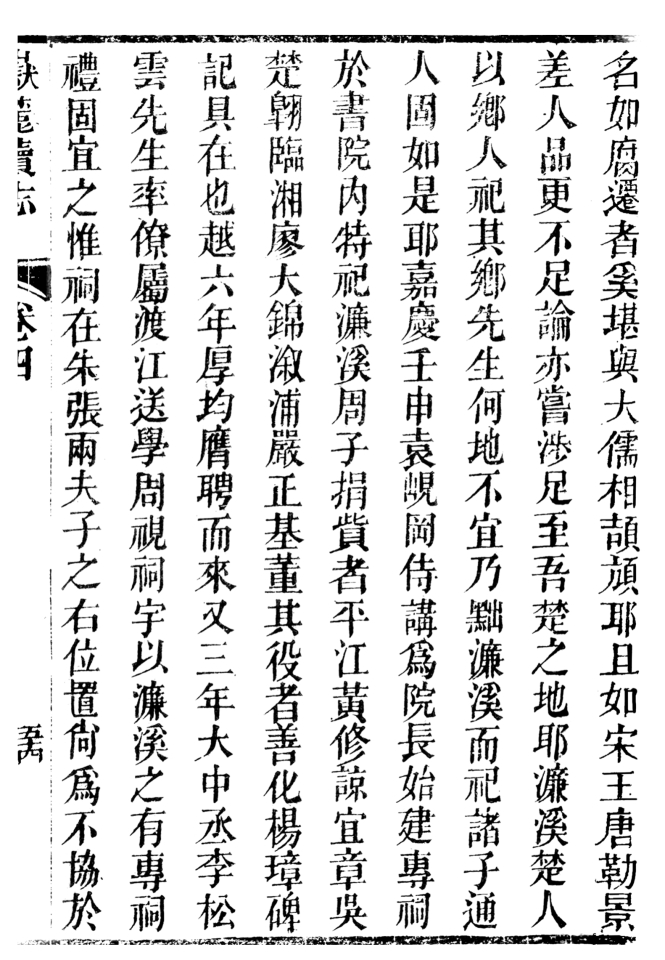 名如腐遷者奚堪與大儒相頡頏耶且如宋玉唐勒景
差人品更不足論亦嘗涉足至吾楚之地耶濂溪楚人
以鄉人祀其鄉先生何地不宜乃黜濂溪而祀諸子通
人固如是耶嘉慶壬申袁峴岡侍講為院長始建專祠
於書院內特祀濂溪周子捐貲者平江黃修諒宜章吳
楚翺臨湘廖大錦漵浦嚴正基董其役者善化楊璋碑
記具在也越六年厚均膺聘而來又三年大中丞李松
雲先生率僚屬渡江送學周視祠宇以濂溪之有專祠
禮固宜之惟祠在朱張兩夫子之右位置尙為不協於
嶽麓續志 卷四